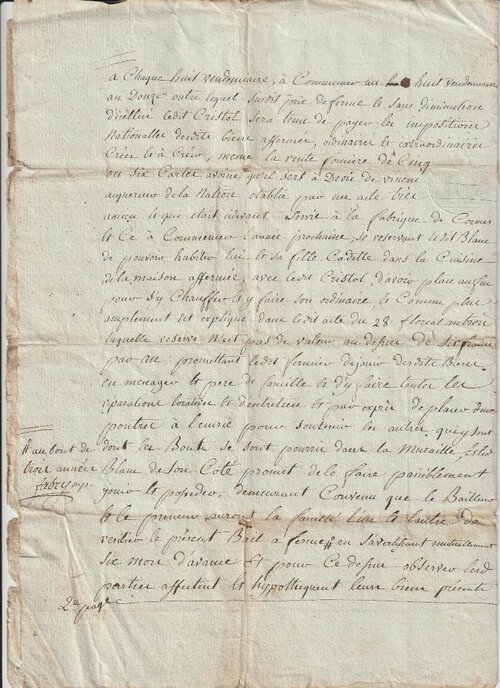 à Chaque huit vendemiaire, à Commencer au huit vendemiaire
an Douze outre lequel susdit prix de ferme et sans diminution
d'icelluy ledit Cristol sera tenu de payer les impositions
Nationalles desdits biens affermés, ordinaires et extraordinaires
Créés et à Créer, meme la rente fonciere de Cinq
ou six Cartes avoine qu'il sert à
de la Nation etablie par un acte très
ancien et qui etait cidevant servie à la fabrique de
et Ce à Commencer l'année prochaine, se reservant ledit Blanc
de pouvoir habiter lui et sa fille Cadette dans la Cuisine
de la maison affermée, avec ledit Cristol d'avoir place au feu
pour s'y Chauffer et y faire son ordinaire et Comme plus
amplement est expliqué dans ledit acte du 28 floreal
laquelle reserve N'est pas de valeur au dessus de six francs
par an, promettant ledit fermier de jouir desdits Biens
en menager et pere de famille et d'y faire toutes les
reparations locatives et d'entretien et par exprès de placer deux
poutres à l'ecurie pour soutenir les autres qui y sont
dont les Bouts se sont pourris dans la Muraille, et led
Blanc de son Coté promet de le faire paisiblement
jouir et posseder, demeurant Convenu que le Bailleur
et le preneur auront la faculté l'un et l'autre de
rendre le présent Bail a ferme # en s'avertissant mutuellement
six mois d'avance et pour Ce dessus observer lesd
parties affectent et hypothequent leurs biens présents
# au bout de
trois années
2e page